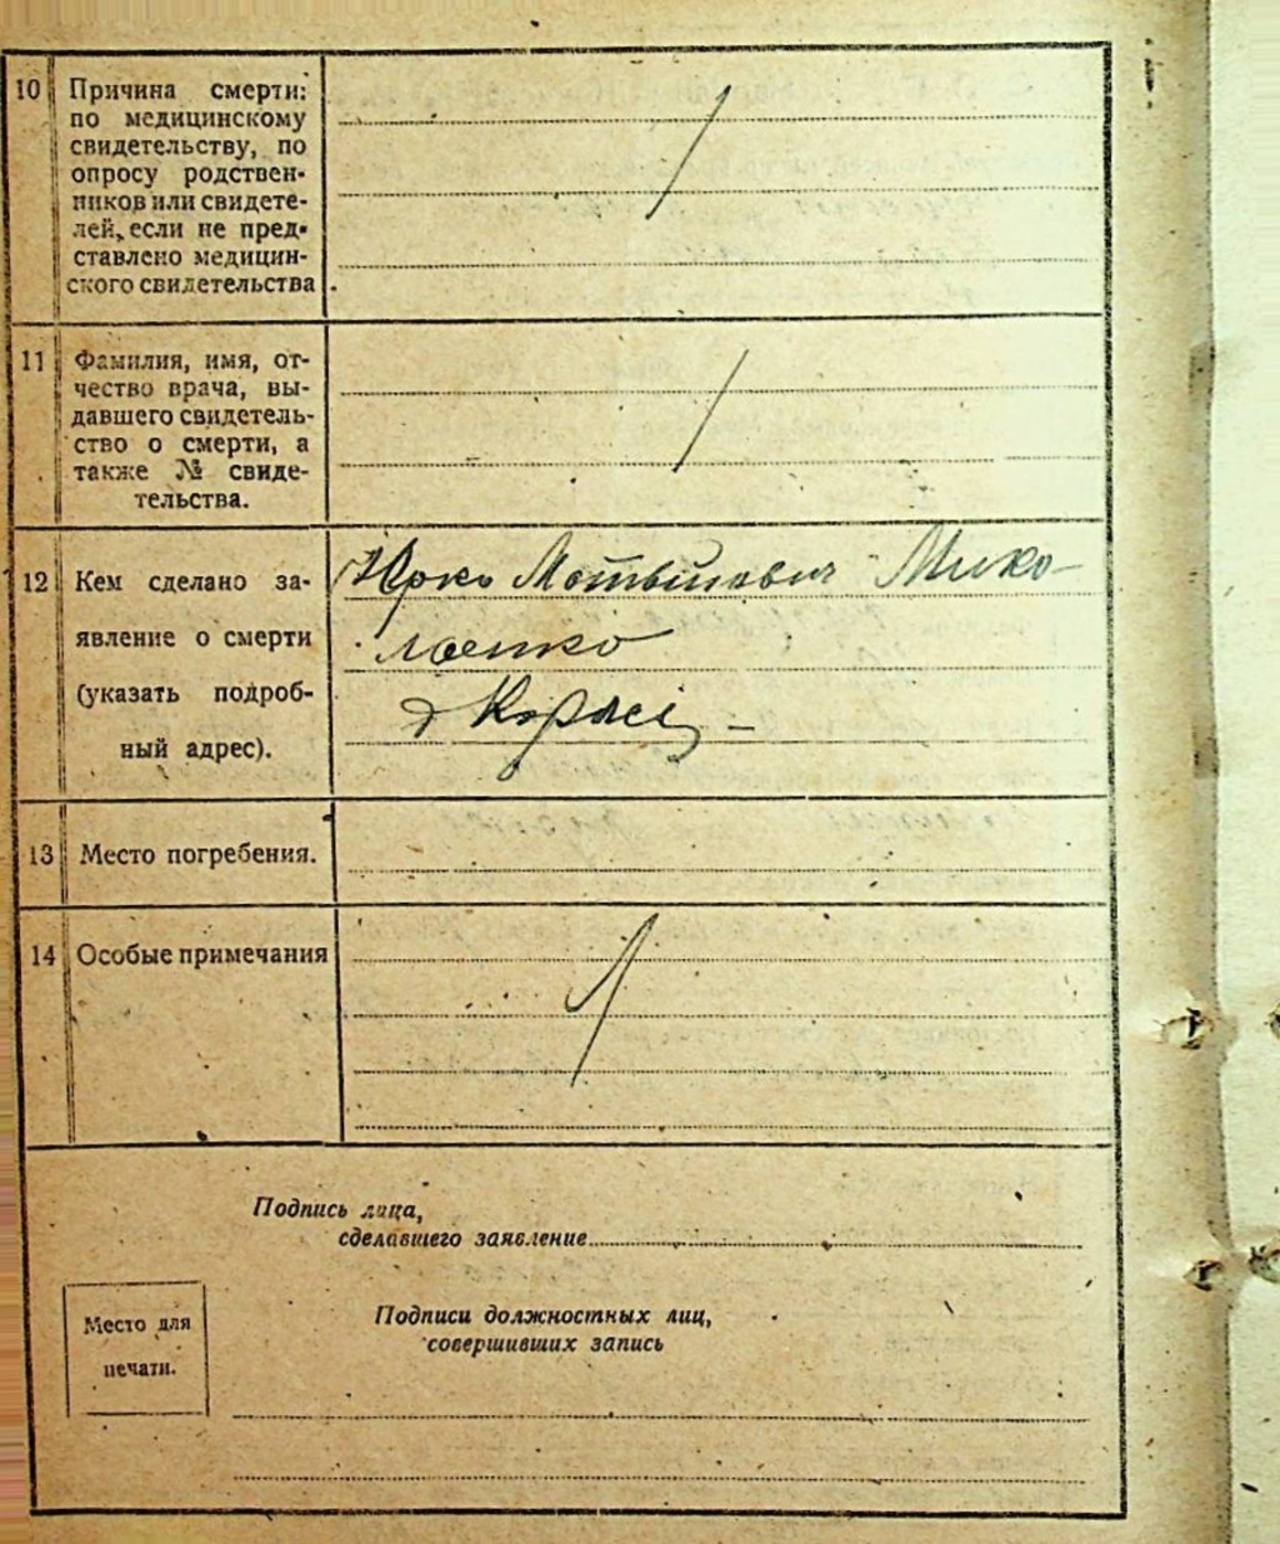 10 Причина смерти:
по медицинскому
свидетельству, по
опросу родствен-
ников или свидете-
лей, если не пред-
ставлено медицин-
ского свидетельства.
11 Фамилия, имя, от-
чество врача, вы-
давшего свидетель-
ство о смерти, а
также № свиде-
тельства.
12 Кем сделано за-
явление о смерти
(указать подроб-
ный адрес).
Юрко Мико-
13 Место погребения.
14 Особые примечания
Подпись лица,
сделавшего заявление
Место для
печати.
Подписи должностных лиц,
совершивших запись